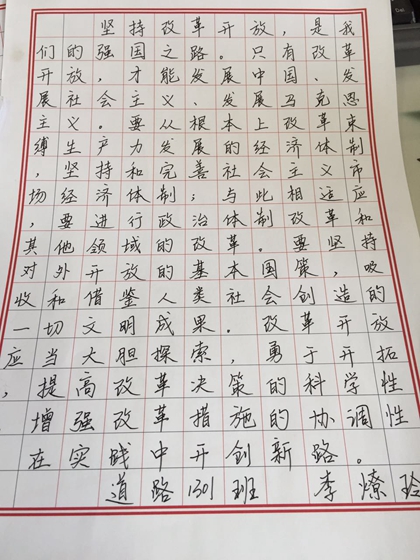 坚持改革开放，是我
们的强国之路。只有改革
开放，才能发展中国、发
展社会主义、发展马克思
主义。要从根本上改革束
缚生产力发展的经济体制
，坚持和完善社会主义市
场经济体制；与此相适应
，要进行政治体制改革和
其他领域的改革。要坚持
对外开放的基本国策，吸
收和借鉴人类社会创造的
一切文明成果。改革开放
应当大胆探索，勇于开拓
，提高改革决策的科学性
，增强改革措施的协调性
在实践中开创新路。
道路1301班 李燎玲